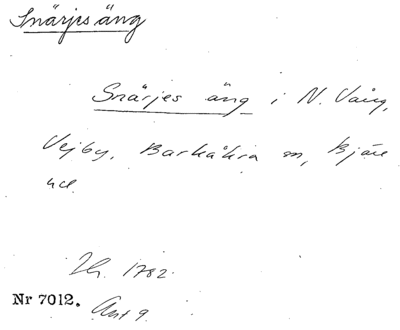 Snärjes äng
Snärjes äng i N. Vång,
Vejby, Barkåkra sn, Bjäre
hd.
Jh. 1782.
Nr 7012. Akt 9